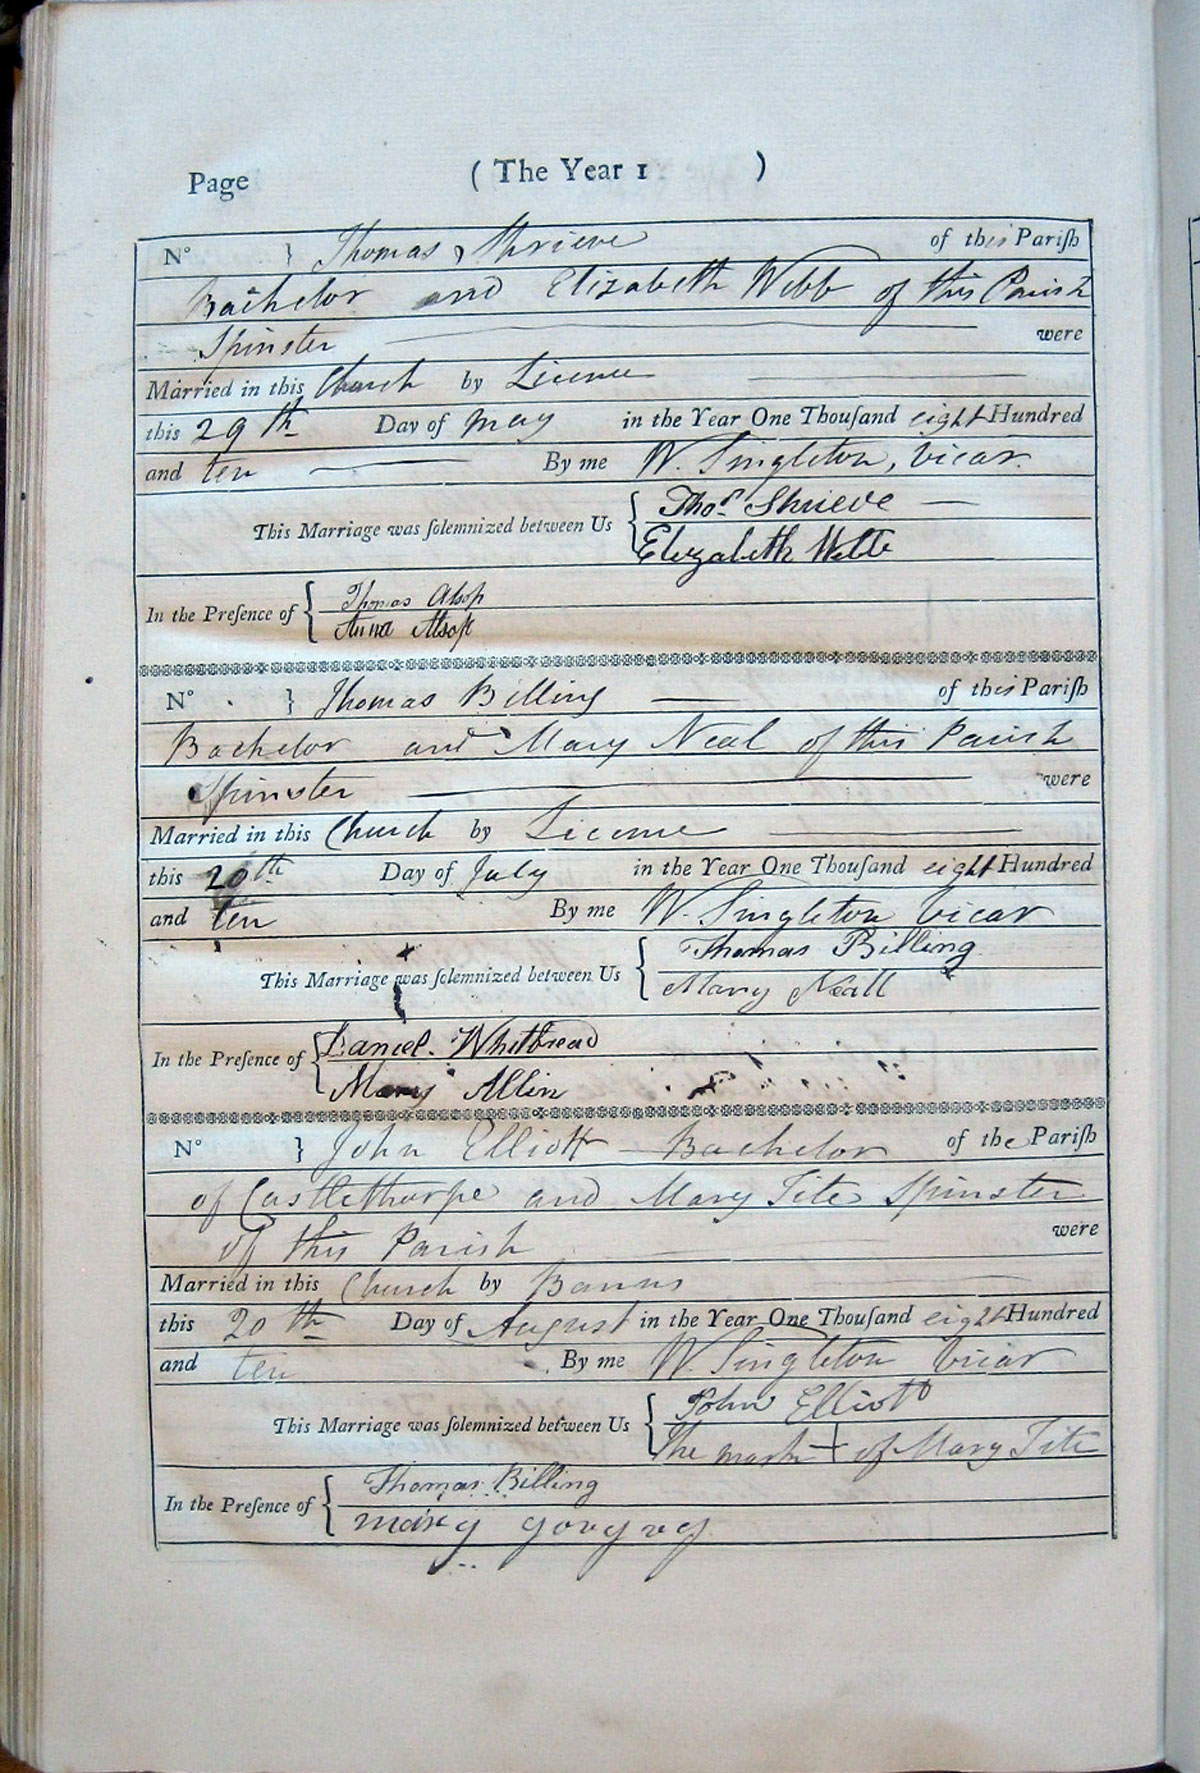 Page (The Year 1 )
No } Thomas Shrieve of this Pariſh
Bachelor and Elizabeth Webb of this Parish
Spinster were
Married in this Church by Licence
this 29th Day of May in the Year One Thouſand eight Hundred
and ten By me W. Singleton, Vicar.
This Marriage was ſolemnized between Us { Thos. Shrieve
Elizabeth Webb
In the Preſence of { Thomas Alsop
Anna Alsop
No } Thomas Billing of this Pariſh
Bachelor and Mary Neal of this Parish
Spinster were
Married in this Church by Licence
this 20th Day of July in the Year One Thouſand eight Hundred
and ten By me W. Singleton Vicar
This Marriage was ſolemnized between Us { Thomas Billing
Mary Neall
In the Preſence of { Daniel Whitbread
Mary Allin
No } John Elliott Bachelor of the Pariſh
of Castlethorpe and Mary Tite Spinster
of this Parish were
Married in this Church by Banns
this 20th Day of August in the Year One Thouſand eight Hundred
and ten By me W. Singleton Vicar
This Marriage was ſolemnized between Us { John Elliott
The mark + of Mary Tite
In the Preſence of { Thomas Billing
mary